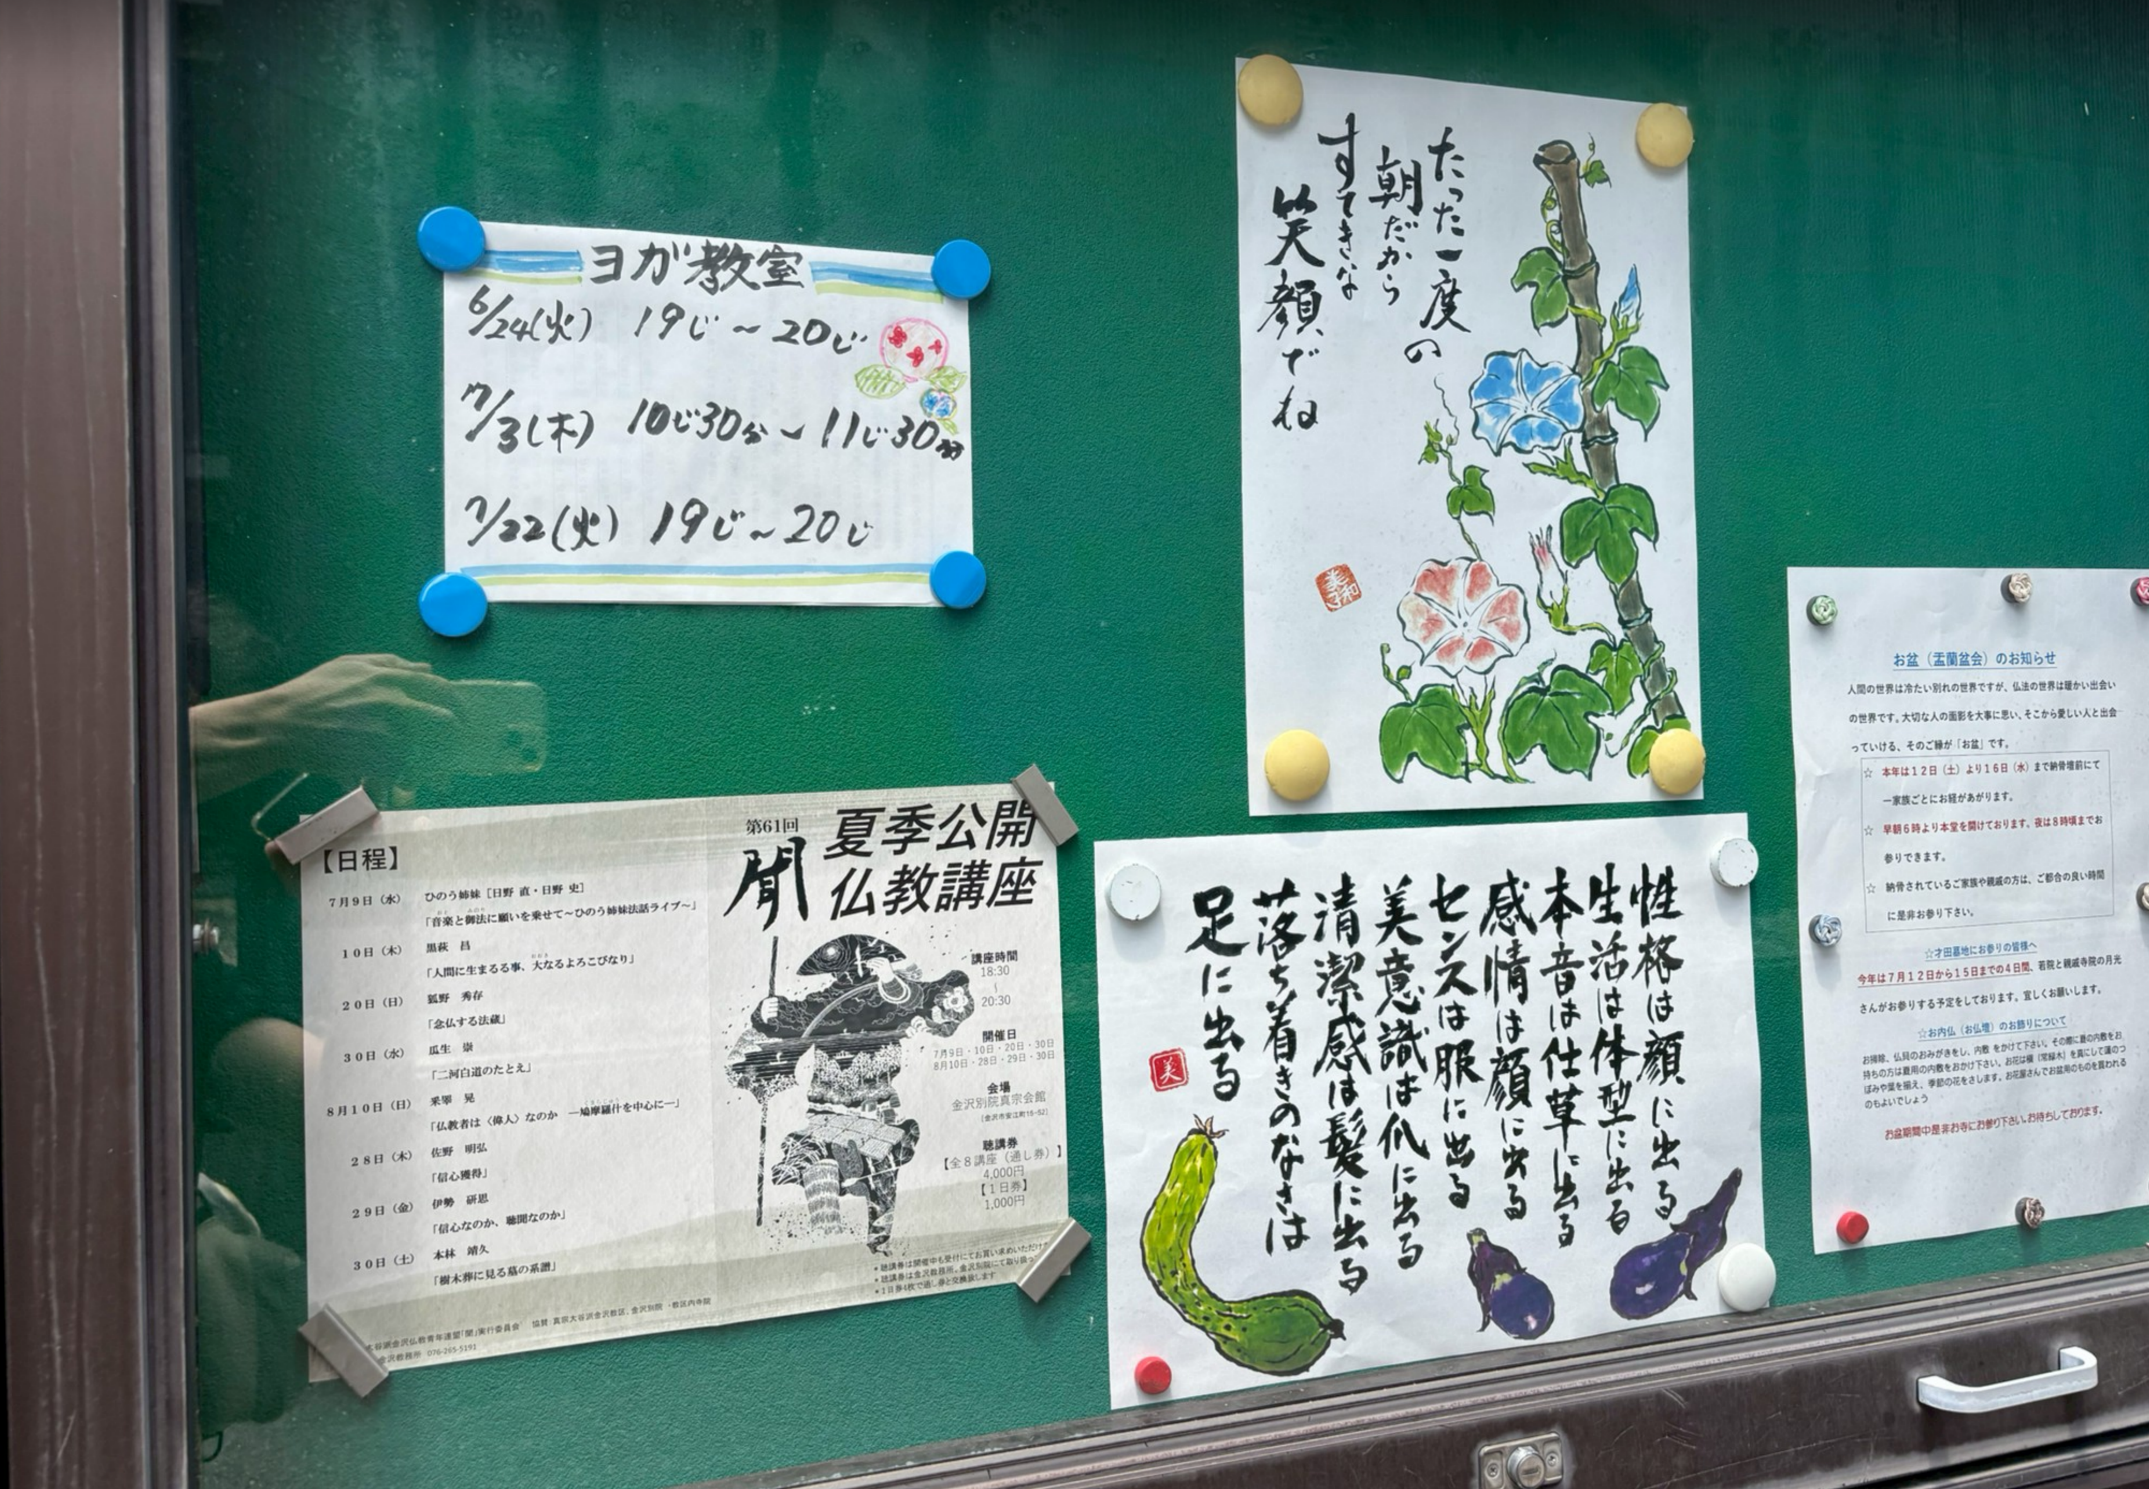 ヨガ教室
6/24(火) 19じ～20じ
7/3(木) 10じ30分～11じ30分
7/22(火) 19じ～20じ
たった一度の
朝だから
すてきな
笑顔でね
美和子
【日程】
7月9日（水） ひのう姉妹［日野 直・日野 史］
「音楽と御法に願いを乗せて～ひのう姉妹法話ライブ～」
10日（木） 黒萩 昌
「人間に生まるる事、大なるよろこびなり」
20日（日） 狐野 秀存
「念仏する法蔵」
30日（水） 瓜生 崇
「二河白道のたとえ」
8月10日（日） 釆睪 晃
「仏教者は〈偉人〉なのか ―鳩摩羅什を中心に―」
28日（木） 佐野 明弘
「信心獲得」
29日（金） 伊勢 研思
「信心なのか、聴聞なのか」
30日（土） 本林 靖久
「樹木葬に見る墓の系譜」
大谷派金沢仏教青年連盟「聞」実行委員会 協賛 真宗大谷派金沢教区、金沢別院・教区内寺院
金沢教務所 076-265-5191
第61回
聞
夏季公開
仏教講座
講座時間
18:30
～
20:30
開催日
7月9日・10日・20日・30日
8月10日・28日・29日・30日
会場
金沢別院真宗会館
［金沢市安江町15-52］
聴講券
【全8講座（通し券）】
4,000円
【1日券】
1,000円
・聴講券は開催中も受付にてお買い求めいただけ
・聴講券は金沢教務所、金沢別院にて取り扱っ
・1日券4枚で通し券と交換致します
性格は顔に出る
生活は体型に出る
本音は仕草に出る
感情は顔に出る
センスは服に出る
美意識は爪に出る
清潔感は髪に出る
落ち着きのなさは
足に出る
美
お盆（盂蘭盆会）のお知らせ
人間の世界は冷たい別れの世界ですが、仏法の世界は暖かい出会い
の世界です。大切な人の面影を大事に思い、そこから愛しい人と出会
っていける、そのご縁が「お盆」です。
☆ 本年は12日（土）より16日（水）まで納骨壇前にて
一家族ごとにお経があがります。
☆ 早朝6時より本堂を開けております。夜は8時頃までお
参りできます。
☆ 納骨されているご家族や親戚の方は、ご都合の良い時間
に是非お参り下さい。
☆才田墓地にお参りの皆様へ
今年は7月12日から15日までの4日間、若院と親戚寺院の月光
さんがお参りする予定をしております。宜しくお願いします。
☆お内仏（お仏壇）のお飾りについて
お掃除、仏具のおみがきをし、内敷をかけて下さい。その際に夏の内敷をお
持ちの方は夏用の内敷をおかけ下さい。お花は槇（常緑木）を真にして蓮のつ
ぼみや葉を揃え、季節の花をさします。お花屋さんでお盆用のものを買われる
のもよいでしょう
お盆期間中是非お寺にお参り下さい。お待ちしております。